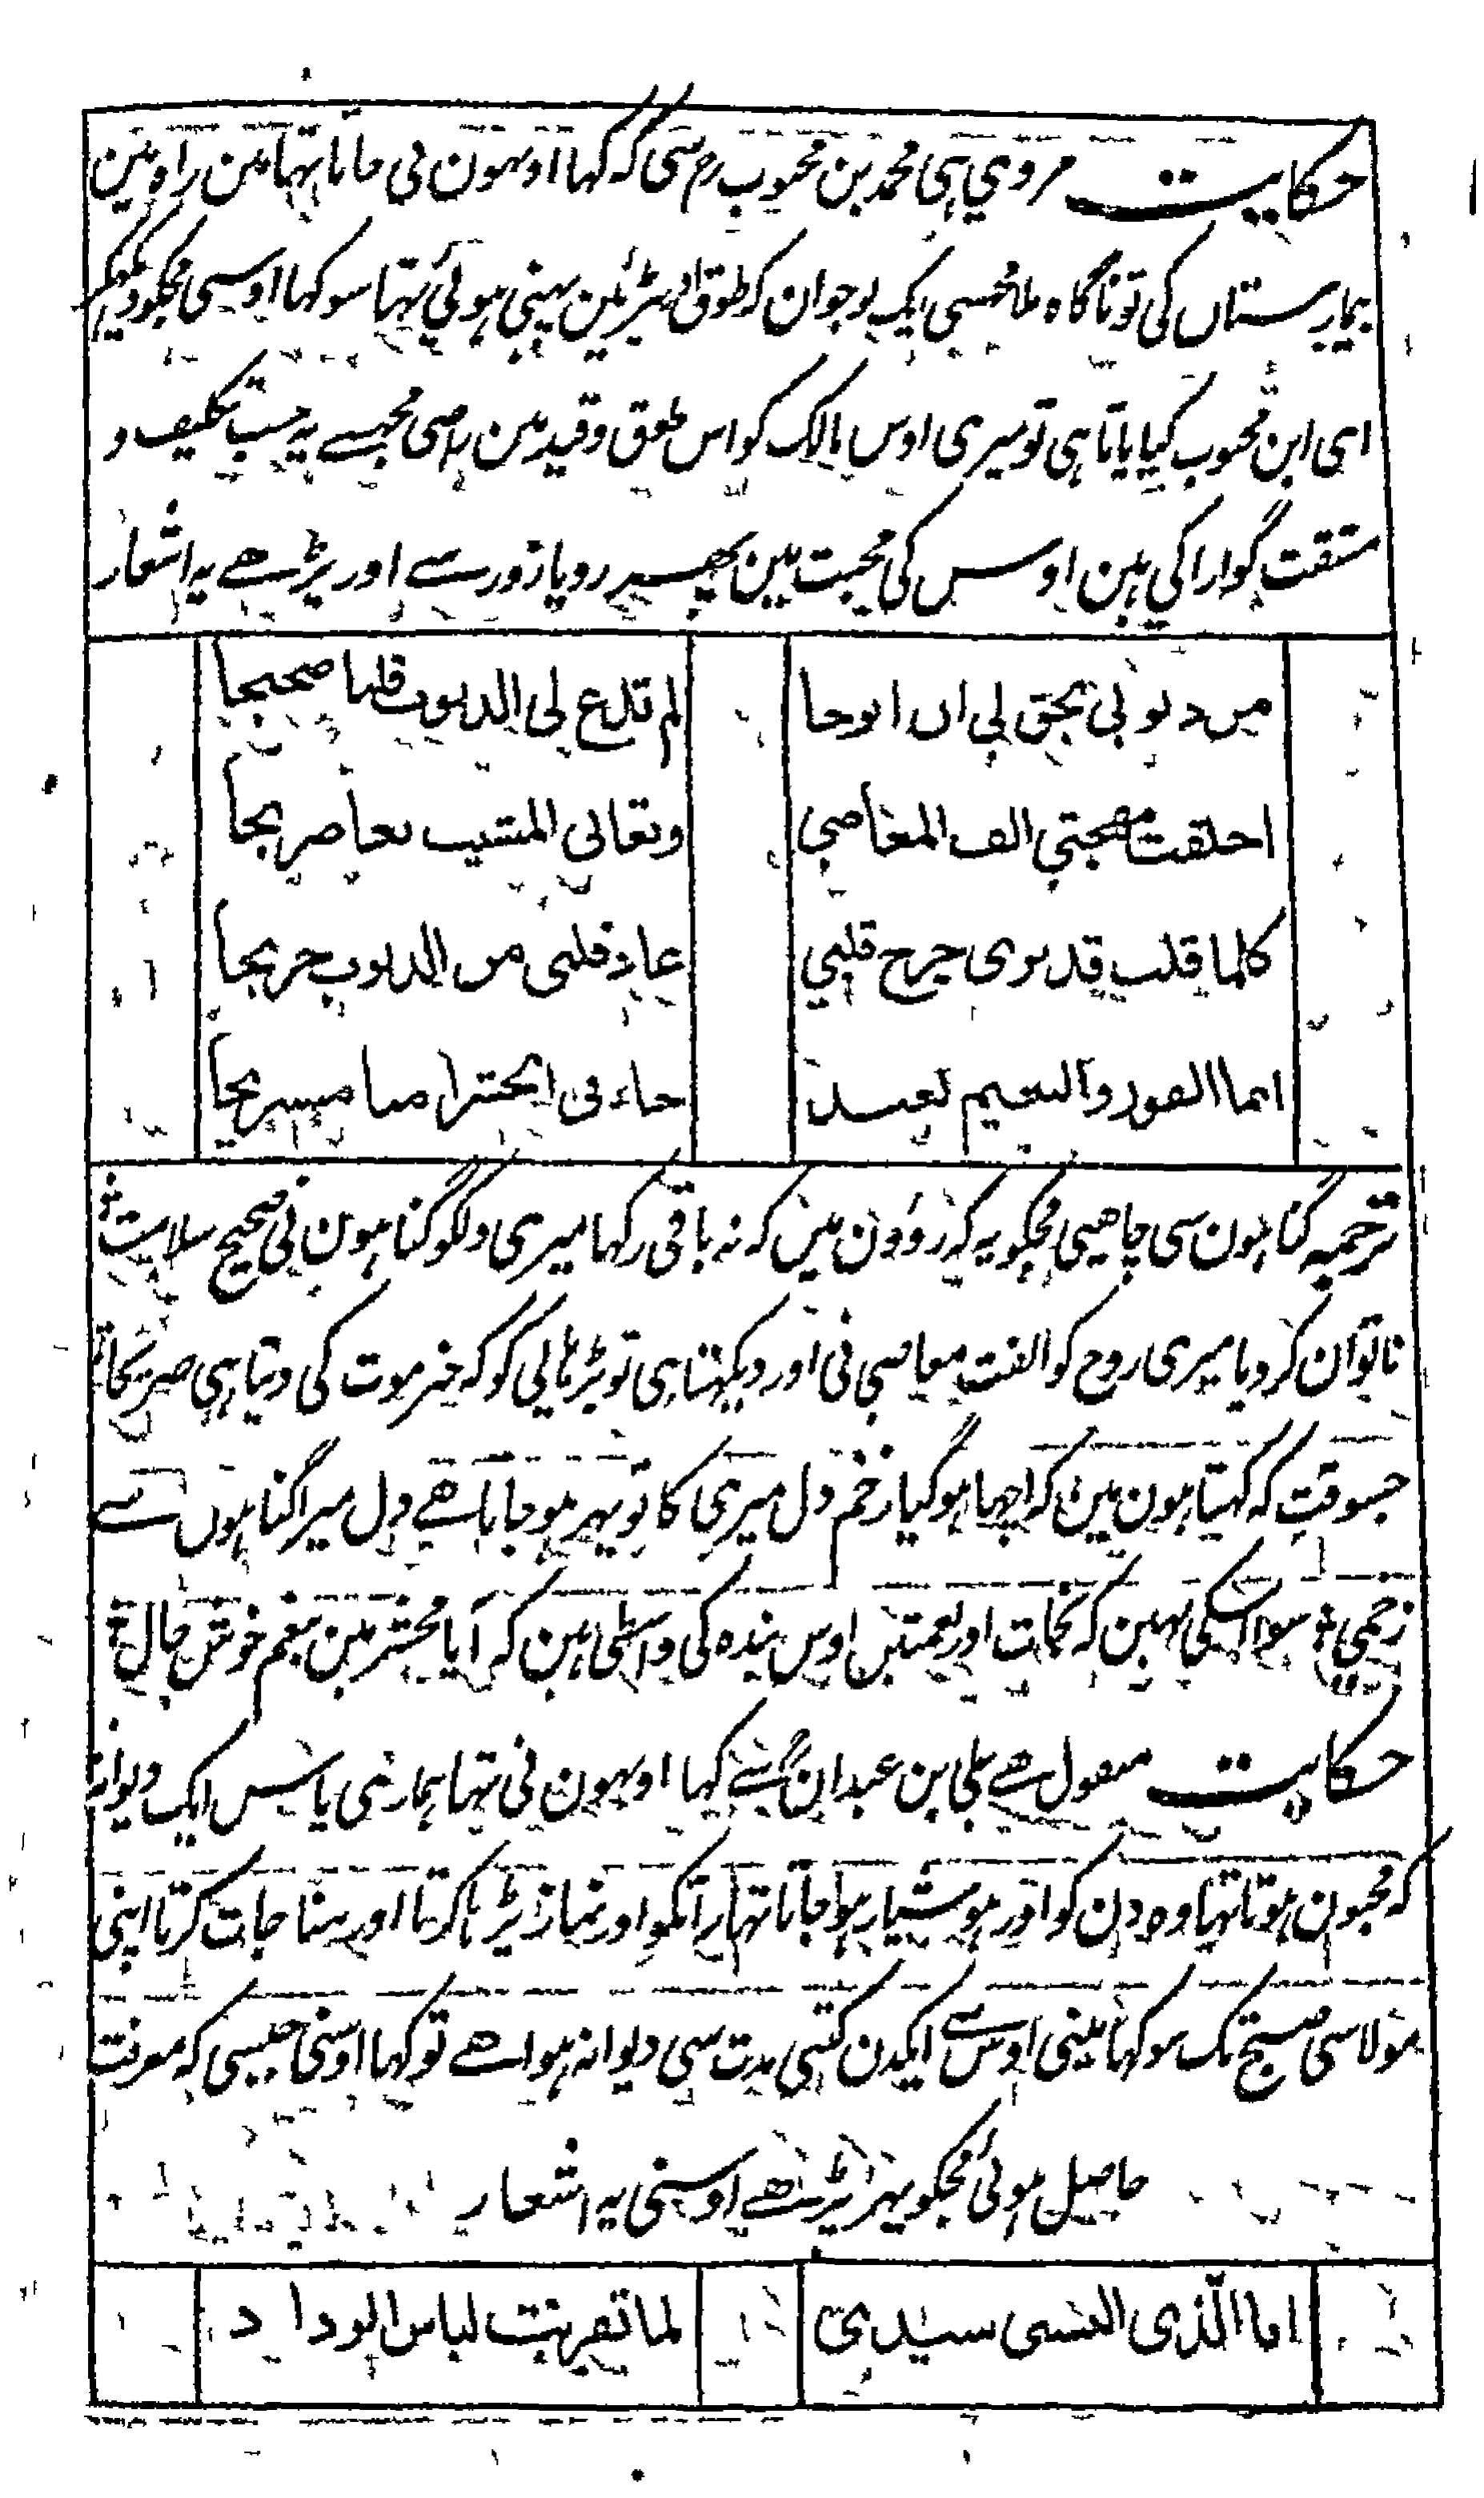 حکایت مروي ہی محمد بن محبوب رح سی کہ کہا اونہون نی جاتا تہا مین راہ مین
بیمارستان کی تو ناگاہ ملا مجھسی ایک نوجوان کہ طوق و بیڑئین پہنی ہوئی تہا سو کہا اوسی مجکو دیکہکر
ای ابن محبوب کیا پاتا ہی تو میری اوس مالک کو اس طوق و قید مین راضی مجہسے یہ حسب تکلیف و
مشقت گوارا کی ہین اوس کی محبت مین پھر رویا زور سے اور پڑہے یہ اشعار
من ذنوبی یحق لی ان انوحا لم تدع لی الذنوب قلبا صحیحا
اخلقت مھجتی الف المعاصی ونعانی المشیب نعیا صریحا
کلما قلت قد بری جرح قلبی عاد قلبی من الذنوب جریحا
انما الفوز والنعیم لعبد جاء فی الحشر امنا مستریحا
ترجمہ گناہون سی چاہیی مجکو یہ کہ رؤون مین کہ نہ باقی رکہا میری دلکو گناہون نی صحیح سلامت ؞
ناتوان کر دیا میری روح کو الفت معاصی نی اور دیکہتا ہی تو بڑہاپی کو کہ خبر موت کی دیتا ہی صریحاً ؞
جسوقت کہ کہتا ہون مین کہ اچہا ہوگیا زخم دل میری کا تو پہر ہو جاتا ھے دل میرا گناہوں سے
زخمي ؞ سوا اسکی نہین کہ نجات اور نعمتین اوس بندہ کی واسطی ہین کہ آیا محشر مین بیغم خوش حال ؞
حکایت منقول ھے علی بن عبدان سے کہا اونہون نی تہا ہماری پاس ایک دیوانہ
کہ مجنون ہوتا تہا وہ دن کو اور ہوشیار ہو جاتا تہا راتکو اور نماز پڑہا کرتا اور مناجات کرتا اپنی
مولا سی صبح تک سو کہا مینی اوس سے ایکدن کتنی مدت سی دیوانہ ہوا ھے تو کہا اوسنی جبسی کہ معرفت
حاصل ہوئی مجکو پہر پڑھے اوسنی یہ اشعار
انا الّذی البسنی سیدی لما تعریت لباس الوداد